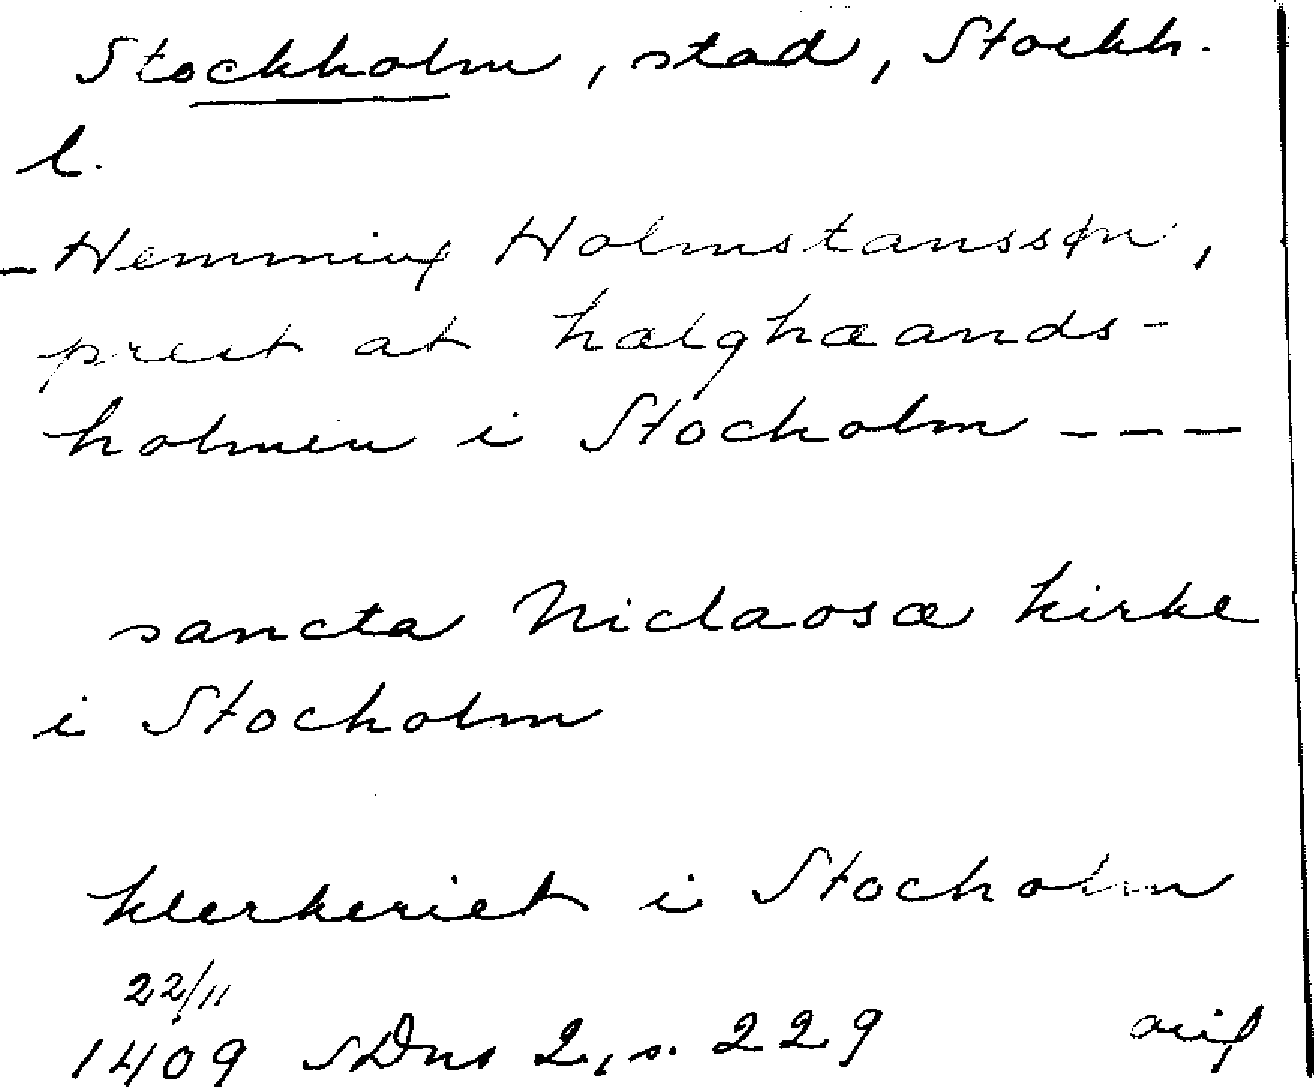 Stockholm, stad, Stockh.
l.
- Hemming Holmstanssøn,
prest at hælghæands-
holmen i Stocholm - - -
sancta Niclaosæ kirke
i Stocholm
klerkeriet i Stocholm
22/11
1409 SDns 2, s. 229 orig